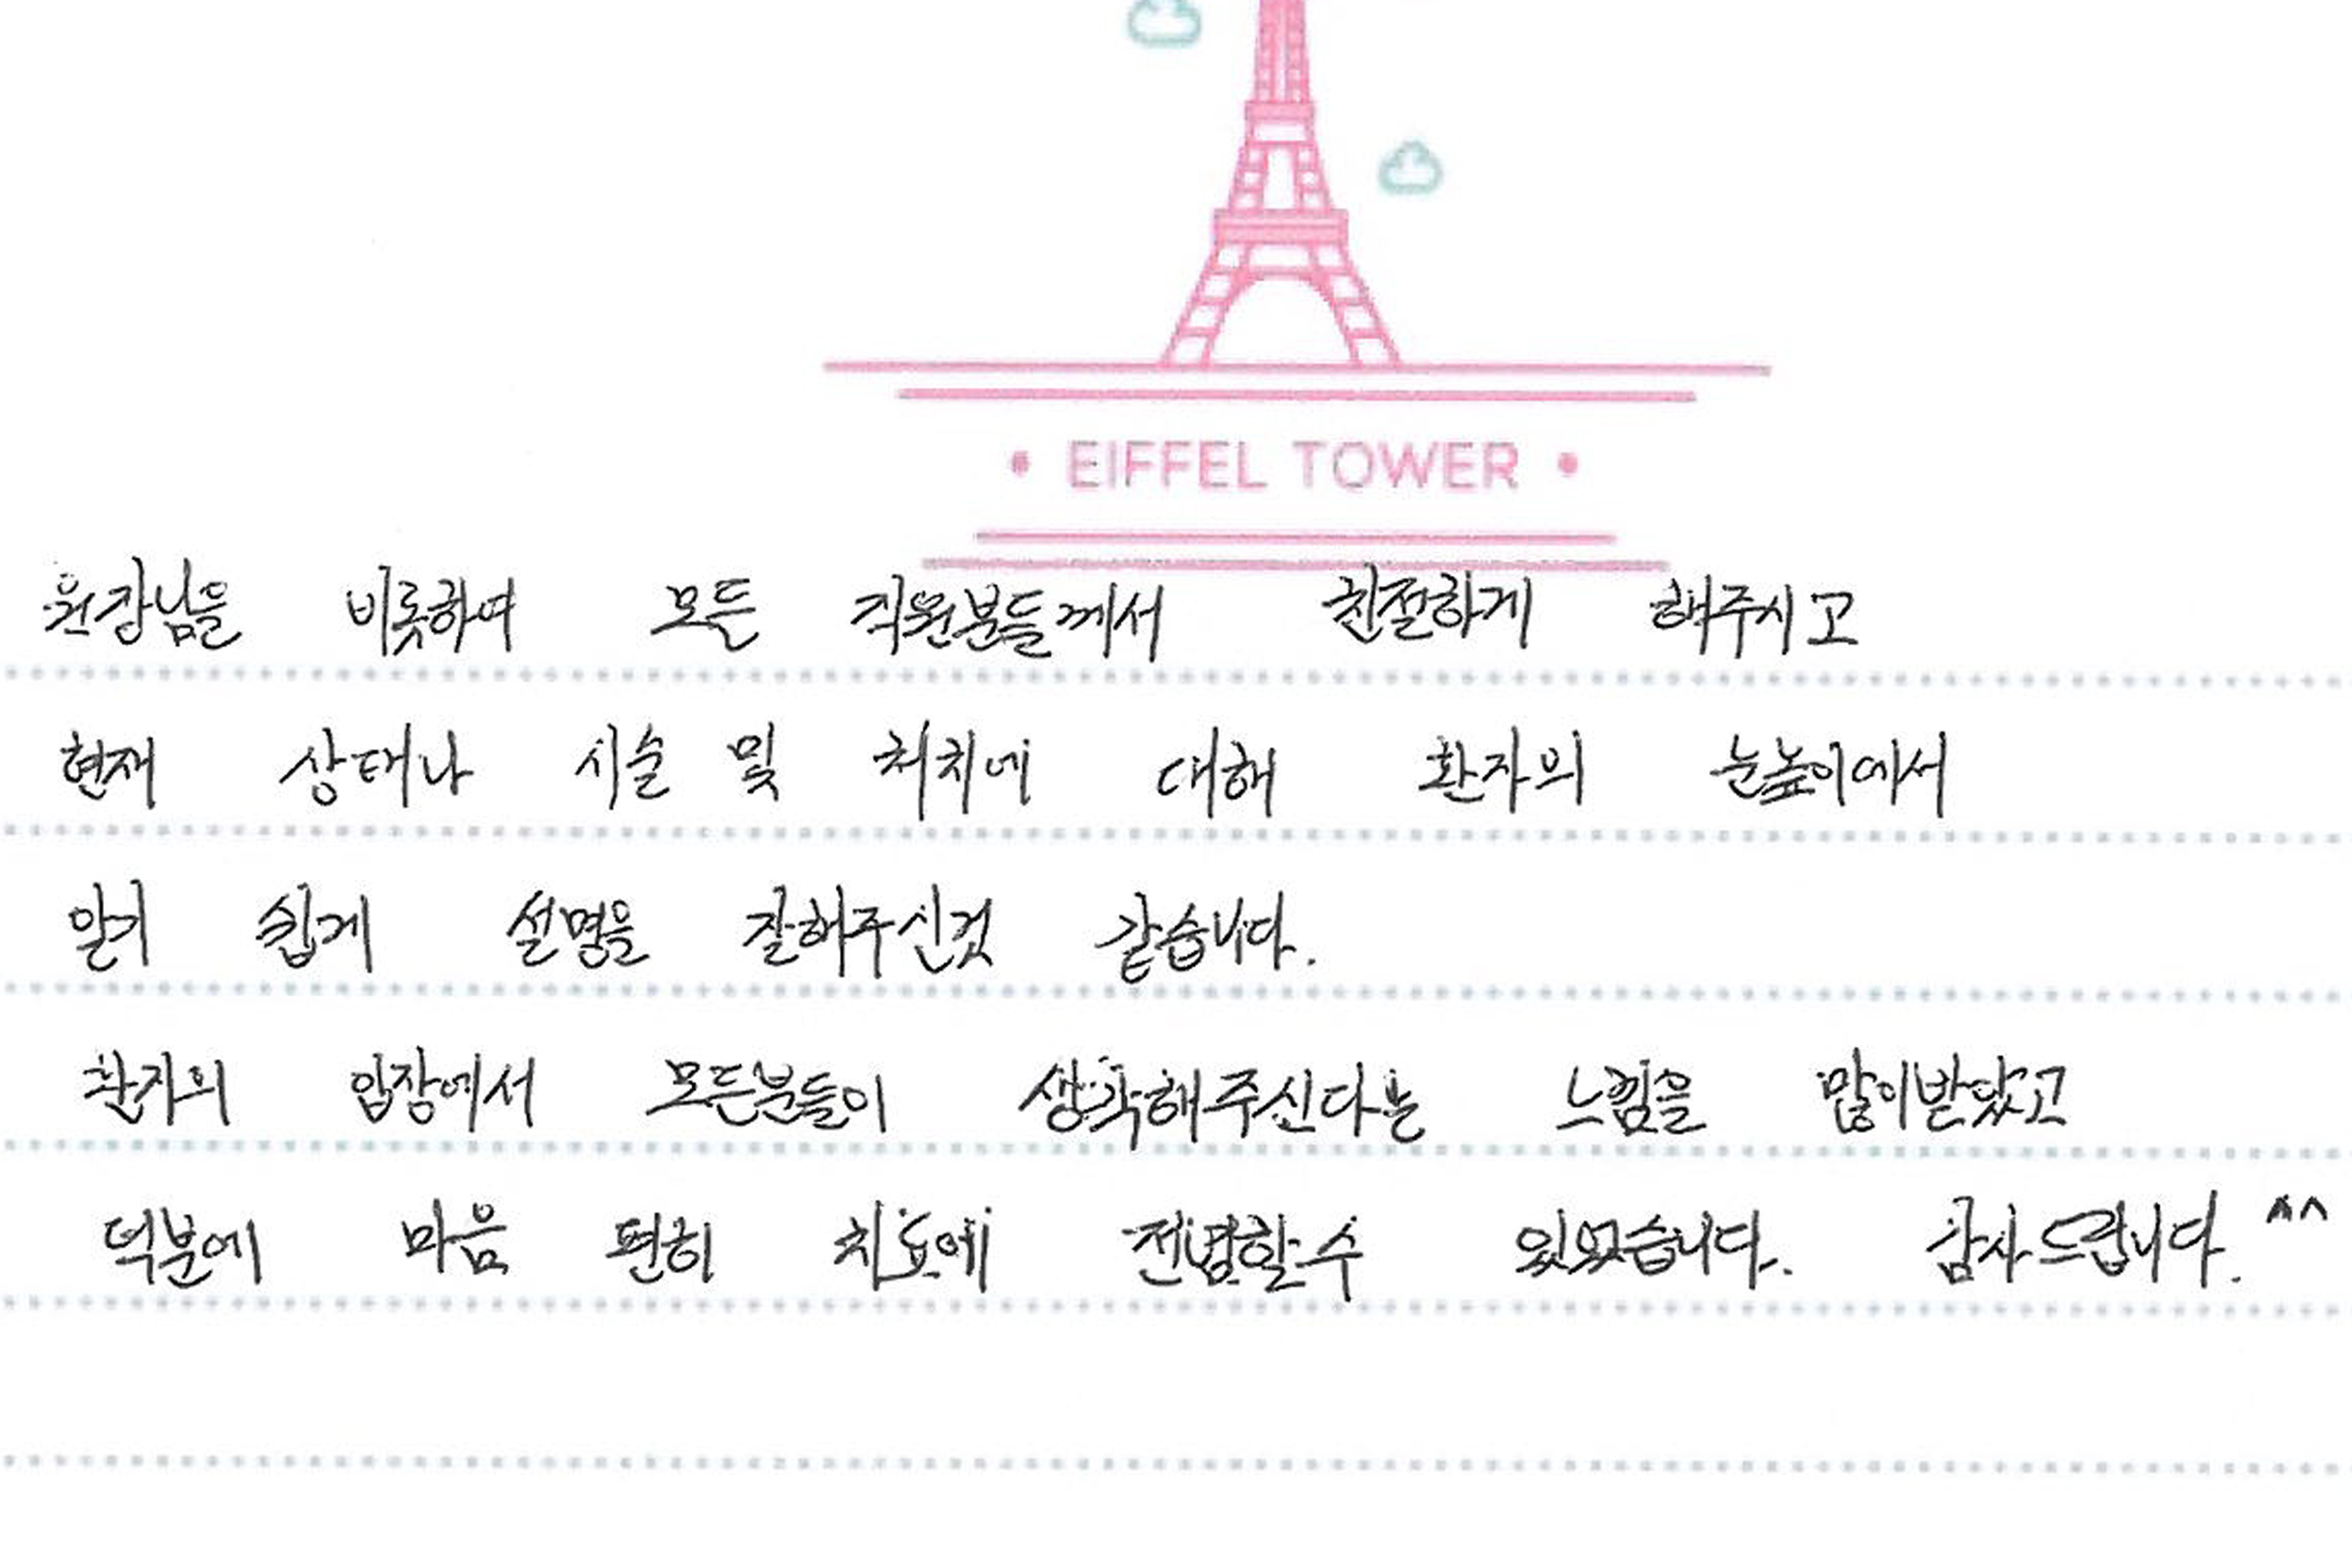 • EIFFEL TOWER •
원장님을 비롯하여 모든 직원분들께서 친절하게 해주시고
현재 상태나 시술 및 처치에 대해 환자의 눈높이에서
알기 쉽게 설명을 잘해주신것 같습니다.
환자의 입장에서 모든분들이 생각해주신다는 느낌을 많이받았고
덕분에 마음 편히 치료에 전념할수 있었습니다. 감사드립니다. ^^